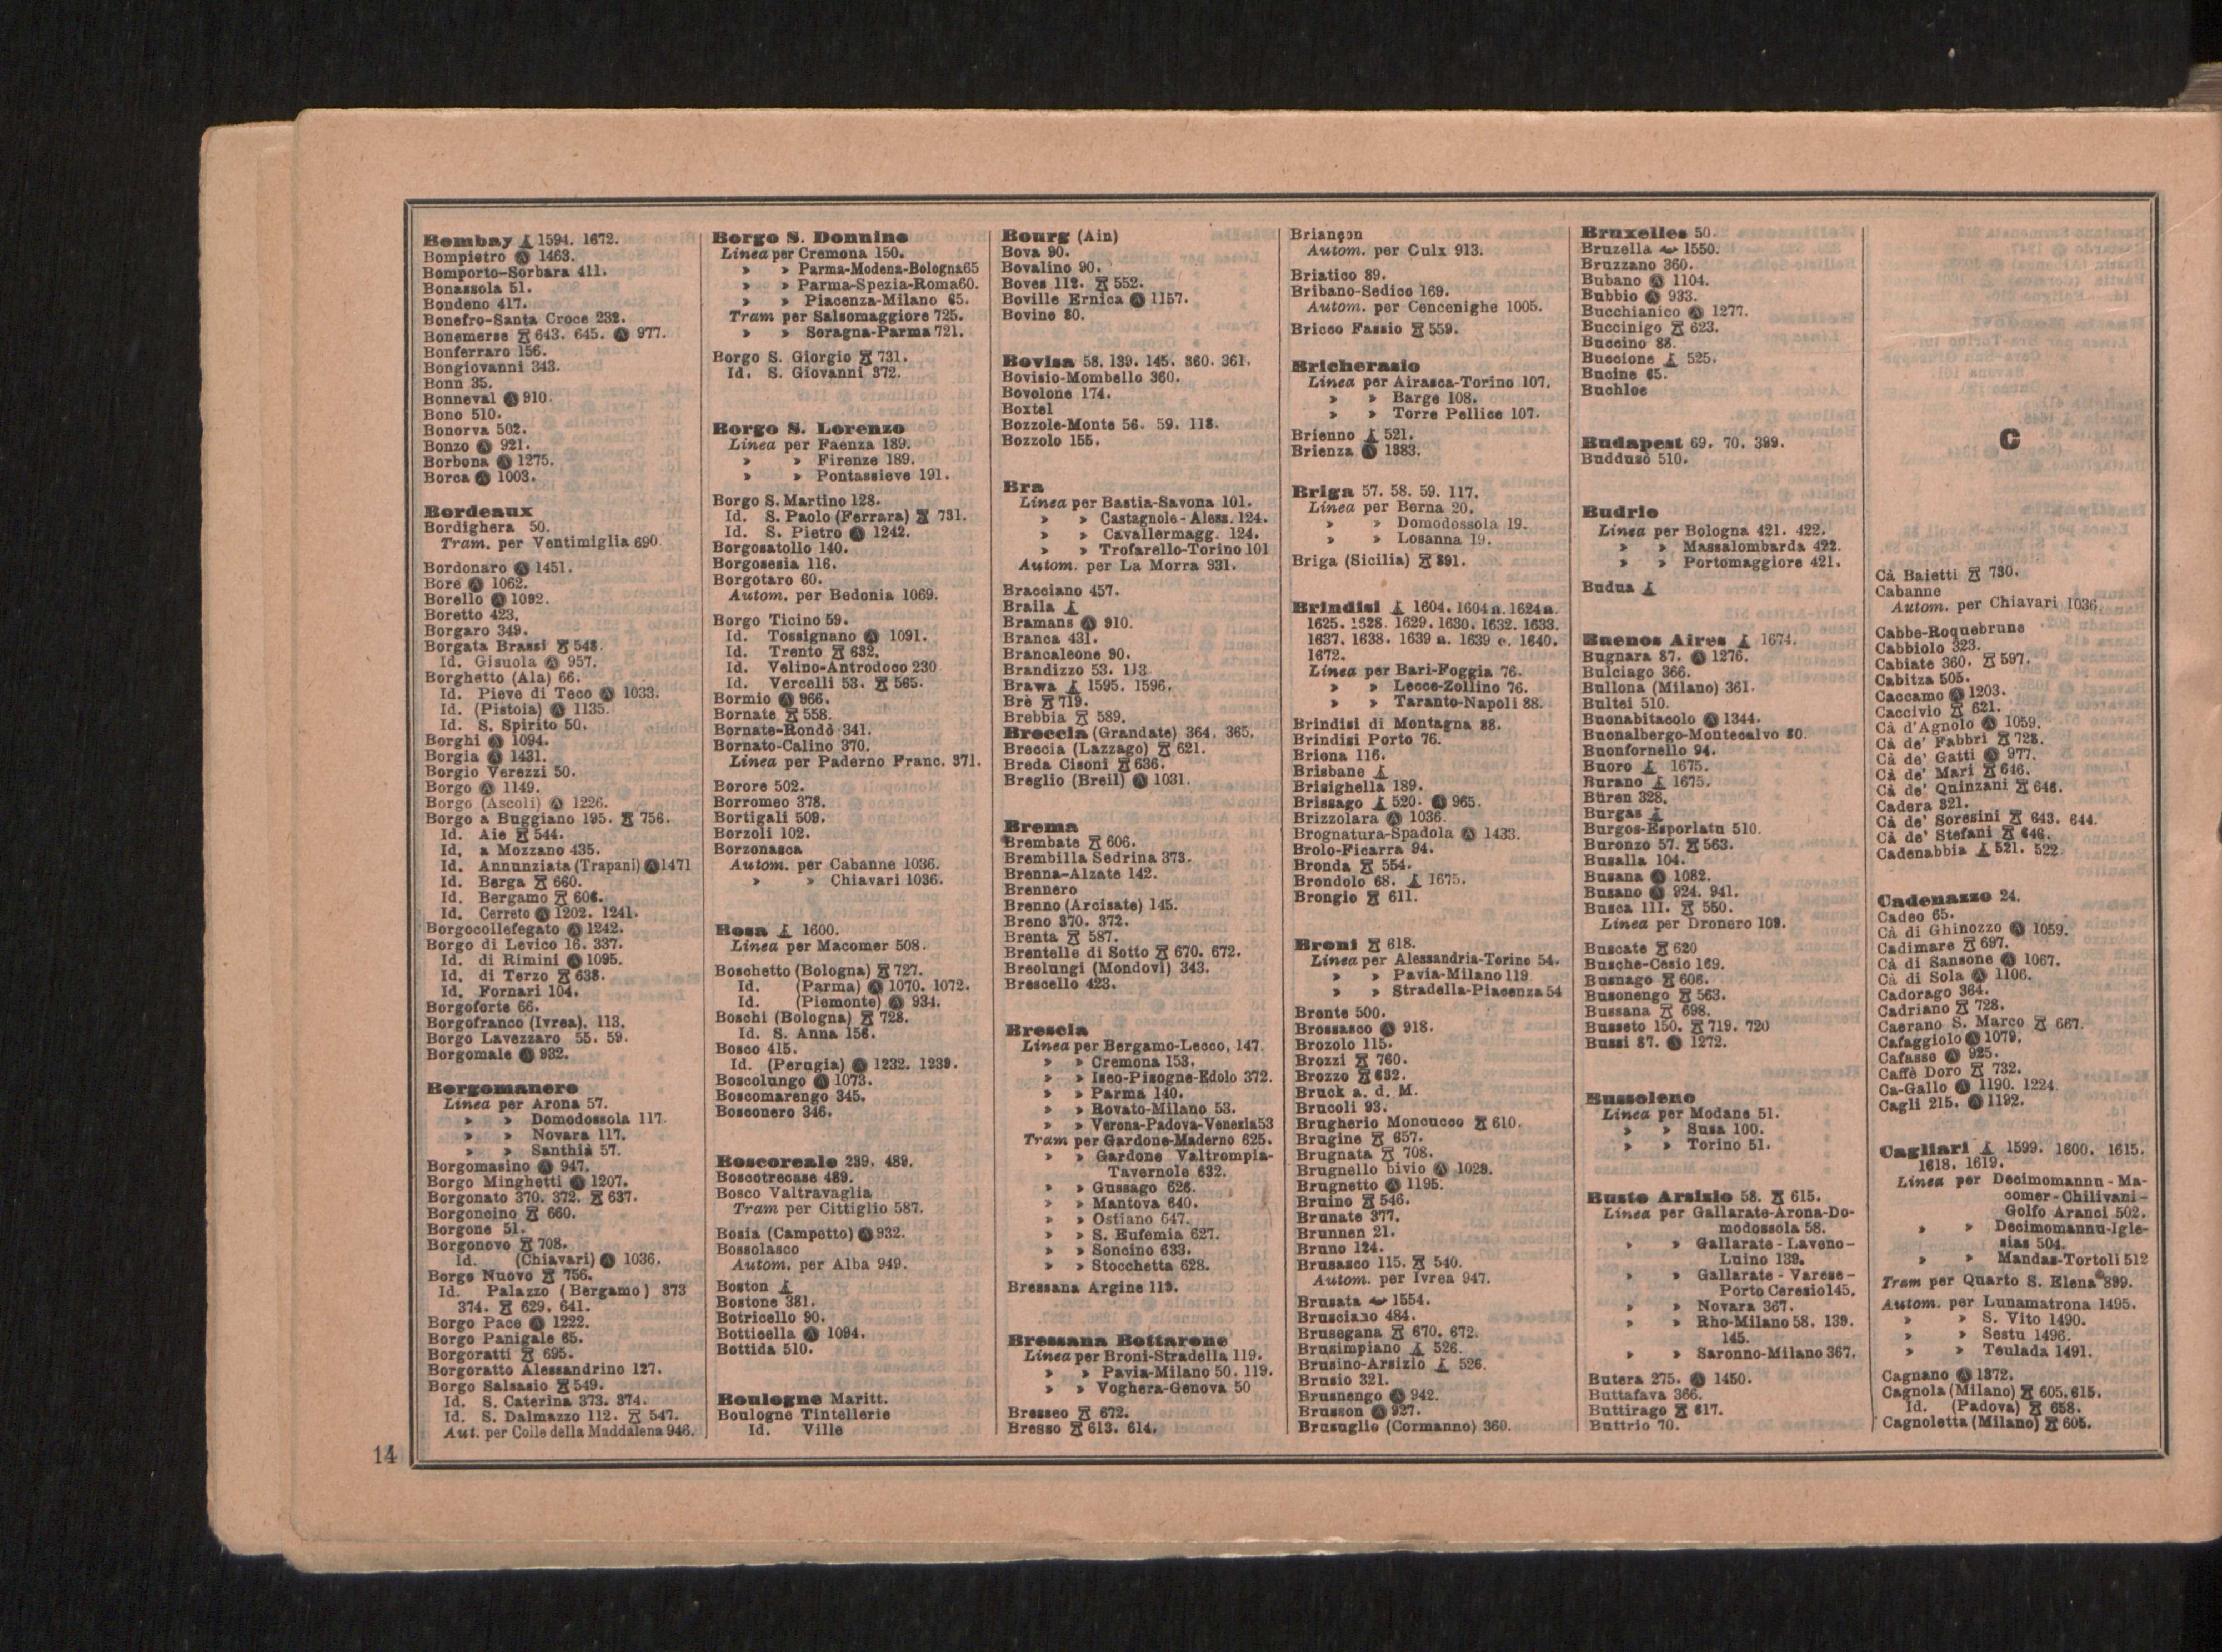 Bombay 1594. 1672.
Bompietro Ⓐ 1463.
Bomporto-Sorbara 411.
Bonassola 51.
Bondeno 417.
Bonefro-Santa Croce 232.
Bonemerse 643. 645. Ⓐ 977.
Bonferraro 156.
Bongiovanni 343.
Bonn 35.
Bonneval Ⓐ 910.
Bono 510.
Bonorva 502.
Bonzo Ⓐ 921.
Borbona Ⓐ 1275.
Borca Ⓐ 1003.
Bordeaux
Bordighera 50.
Tram. per Ventimiglia 690.
Bordonaro Ⓐ 1451.
Bore Ⓐ 1062.
Borello Ⓐ 1092.
Boretto 423.
Borgaro 349.
Borgata Brassi 548.
Id. Gisuola Ⓐ 957.
Borghetto (Ala) 66.
Id. Pieve di Teco Ⓐ 1033.
Id. (Pistoia) Ⓐ 1135.
Id. S. Spirito 50.
Borghi Ⓐ 1094.
Borgia Ⓐ 1431.
Borgio Verezzi 50.
Borgo Ⓐ 1149.
Borgo (Ascoli) Ⓐ 1226.
Borgo a Buggiano 195. 756.
Id. Aie 544.
Id. a Mozzano 435.
Id. Annunziata (Trapani) Ⓐ 1471
Id. Berga 660.
Id. Bergamo 606.
Id. Cerreto Ⓐ 1202. 1241.
Borgocollefegato Ⓐ 1242.
Borgo di Levico 16. 337.
Id. di Rimini Ⓐ 1095.
Id. di Terzo 638.
Id. Fornari 104.
Borgoforte 66.
Borgofranco (Ivrea). 113.
Borgo Lavezzaro 55. 59.
Borgomale Ⓐ 932.
Borgomanero
Linea per Arona 57.
» » Domodossola 117.
» » Novara 117.
» » Santhià 57.
Borgomasino Ⓐ 947.
Borgo Minghetti Ⓐ 1207.
Borgonato 370. 372. 637.
Borgoncino 660.
Borgone 51.
Borgonovo 708.
Id. (Chiavari) Ⓐ 1036.
Borgo Nuovo 756.
Id. Palazzo (Bergamo) 373
374. 629. 641.
Borgo Pace Ⓐ 1222.
Borgo Panigale 65.
Borgoratti 695.
Borgoratto Alessandrino 127.
Borgo Salsasio 549.
Id. S. Caterina 373. 374.
Id. S. Dalmazzo 112. 547.
Aut. per Colle della Maddalena 946.
Borgo S. Donnino
Linea per Cremona 150.
» » Parma-Modena-Bologna 65
» » Parma-Spezia-Roma 60.
» » Piacenza-Milano 65.
Tram per Salsomaggiore 725.
» » Soragna-Parma 721.
Borgo S. Giorgio 731.
Id. S. Giovanni 372.
Borgo S. Lorenzo
Linea per Faenza 189.
» » Firenze 189.
» » Pontassieve 191.
Borgo S. Martino 128.
Id. S. Paolo (Ferrara) 731.
Id. S. Pietro Ⓐ 1242.
Borgosatollo 140.
Borgosesia 116.
Borgotaro 60.
Autom. per Bedonia 1069.
Borgo Ticino 59.
Id. Tossignano Ⓐ 1091.
Id. Trento 632.
Id. Velino-Antrodoco 230
Id. Vercelli 53. 565.
Bormio Ⓐ 966.
Bornate 558.
Bornate-Rondò 341.
Bornato-Calino 370.
Linea per Paderno Franc. 371.
Borore 502.
Borromeo 378.
Bortigali 509.
Borzoli 102.
Borzonasca
Autom. per Cabanne 1036.
» » Chiavari 1036.
Bosa 1600.
Linea per Macomer 508.
Boschetto (Bologna) 727.
Id. (Parma) Ⓐ 1070. 1072.
Id. (Piemonte) Ⓐ 934.
Boschi (Bologna) 728.
Id. S. Anna 156.
Bosco 415.
Id. (Perugia) Ⓐ 1232. 1239.
Boscolungo Ⓐ 1073.
Boscomarengo 345.
Bosconero 346.
Boscoreale 239. 489.
Boscotrecase 489.
Bosco Valtravaglia
Tram per Cittiglio 587.
Bosia (Campetto) Ⓐ 932.
Bossolasco
Autom. per Alba 949.
Boston
Bostone 381.
Botricello 90.
Botticella Ⓐ 1094.
Bottida 510.
Boulogne Maritt.
Boulogne Tintellerie
Id. Ville
Bourg (Ain)
Bova 90.
Bovalino 90.
Boves 112. 552.
Boville Ernica Ⓐ 1157.
Bovino 80.
Bovisa 58. 139. 145. 360. 361.
Bovisio-Mombello 360.
Bovolone 174.
Boxtel
Bozzole-Monte 56. 59. 118.
Bozzolo 155.
Bra
Linea per Bastia-Savona 101.
» » Castagnole-Aless. 124.
» » Cavallermagg. 124.
» » Trofarello-Torino 101
Autom. per La Morra 931.
Bracciano 457.
Braila
Bramans Ⓐ 910.
Branca 431.
Brancaleone 90.
Brandizzo 53. 113
Brawa 1595. 1596.
Brè 719.
Brebbia 589.
Breccia (Grandate) 364. 365.
Breccia (Lazzago) 621.
Breda Cisoni 636.
Breglio (Breil) Ⓐ 1031.
Brema
Brembate 606.
Brembilla Sedrina 373.
Brenna-Alzate 142.
Brennero
Brenno (Arcisate) 145.
Breno 370. 372.
Brenta 587.
Brentelle di Sotto 670. 672.
Breolungi (Mondovì) 343.
Brescello 423.
Brescia
Linea per Bergamo-Lecco, 147.
» » Cremona 153.
» » Iseo-Pisogne-Edolo 372.
» » Parma 140.
» » Rovato-Milano 53.
» » Verona-Padova-Venezia 53
Tram per Gardone-Maderno 625.
» » Gardone Valtrompia-
Tavernole 632.
» » Gussago 626.
» » Mantova 640.
» » Ostiano 647.
» » S. Eufemia 627.
» » Soncino 633.
» » Stocchetta 628.
Bressana Argine 119.
Bressana Bottarone
Linea per Broni-Stradella 119.
» » Pavia-Milano 50. 119.
» » Voghera-Genova 50
Bresseo 672.
Bresso 613. 614.
Briançon
Autom. per Oulx 913.
Briatico 89.
Bribano-Sedico 169.
Autom. per Cencenighe 1005.
Bricco Fassio 559.
Bricherasio
Linea per Airasca-Torino 107.
» » Barge 108.
» » Torre Pellice 107.
Brienno 521.
Brienza Ⓐ 1383.
Briga 57. 58. 59. 117.
Linea per Berna 20.
» » Domodossola 19.
» » Losanna 19.
Briga (Sicilia) 891.
Brindisi 1604. 1604 a. 1624 a.
1625. 1628. 1629. 1630. 1632. 1633.
1637. 1638. 1639 a. 1639 c. 1640.
1672.
Linea per Bari-Foggia 76.
» » Lecce-Zollino 76.
» » Taranto-Napoli 88.
Brindisi di Montagna 88.
Brindisi Porto 76.
Briona 116.
Brisbane
Brisighella 189.
Brissago 520. Ⓐ 965.
Brizzolara Ⓐ 1036.
Brognatura-Spadola Ⓐ 1433.
Brolo-Ficarra 94.
Bronda 554.
Brondolo 68. 1675.
Brongio 611.
Broni 618.
Linea per Alessandria-Torino 54.
» » Pavia-Milano 119
» » Stradella-Piacenza 54
Bronte 500.
Brossasco Ⓐ 918.
Brozolo 115.
Brozzi 760.
Brozzo 632.
Bruck a. d. M.
Brucoli 93.
Brugherio Moncucco 610.
Brugine 657.
Brugnata 708.
Brugnello bivio Ⓐ 1029.
Brugnetto Ⓐ 1195.
Bruino 546.
Brunate 377.
Brunnen 21.
Bruno 124.
Brusasco 115. 540.
Autom. per Ivrea 947.
Brusata 1554.
Brusciano 484.
Brusegana 670. 672.
Brusimpiano 526.
Brusino-Arsizio 526.
Brusio 321.
Brusnengo Ⓐ 942.
Brusson Ⓐ 927.
Brusuglio (Cormanno) 360.
Bruxelles 50.
Bruzella 1550.
Bruzzano 360.
Bubano Ⓐ 1104.
Bubbio Ⓐ 933.
Bucchianico Ⓐ 1277.
Buccinigo 623.
Buccino 88.
Buccione 525.
Bucine 65.
Buchloe
Budapest 69. 70. 399.
Buddusò 510.
Budrio
Linea per Bologna 421. 422.
» » Massalombarda 422.
» » Portomaggiore 421.
Budua
Buenos Aires 1674.
Bugnara 87. Ⓐ 1276.
Bulciago 366.
Bullona (Milano) 361.
Bultei 510.
Buonabitacolo Ⓐ 1344.
Buonalbergo-Montecalvo 80.
Buonfornello 94.
Buoro 1675.
Burano 1675.
Büren 328.
Burgas
Burgos-Esporlatu 510.
Buronzo 57. 563.
Busalla 104.
Busana Ⓐ 1082.
Busano Ⓐ 924. 941.
Busca 111. 550.
Linea per Dronero 109.
Buscate 620
Busche-Cesio 169.
Busnago 606.
Busonengo 563.
Bussana 698.
Busseto 150. 719. 720
Bussi 87. Ⓐ 1272.
Bussoleno
Linea per Modane 51.
» » Susa 100.
» » Torino 51.
Busto Arsizio 58. 615.
Linea per Gallarate-Arona-Do-
modossola 58.
» » Gallarate-Laveno-
Luino 139.
» » Gallarate-Varese-
Porto Ceresio 145.
» » Novara 367.
» » Rho-Milano 58. 139.
145.
» » Saronno-Milano 367.
Butera 275. Ⓐ 1450.
Buttafava 366.
Buttirago 617.
Buttrio 70.
C
Cà Baietti 730.
Cabanne
Autom. per Chiavari 1036.
Cabbe-Roquebrune
Cabbiolo 323.
Cabiate 360. 597.
Cabitza 505.
Caccamo Ⓐ 1203.
Caccivio 621.
Cà d'Agnolo Ⓐ 1059.
Cà de' Fabbri 728.
Cà de' Gatti Ⓐ 977.
Cà de' Mari 646.
Cà de' Quinzani 646.
Cadera 321.
Cà de' Soresini 643. 644.
Cà de' Stefani 646.
Cadenabbia 521. 522
Cadenazzo 24.
Cadeo 65.
Cà di Ghinozzo Ⓐ 1059.
Cadimare 697.
Cà di Sansone Ⓐ 1067.
Cà di Sola Ⓐ 1106.
Cadorago 364.
Cadriano 728.
Caerano S. Marco 667.
Cafaggiolo Ⓐ 1079.
Cafasse Ⓐ 925.
Caffè Doro 732.
Ca-Gallo Ⓐ 1190. 1224
Cagli 215. Ⓐ 1192.
Cagliari 1599. 1600. 1615.
1618. 1619.
Linea per Decimomannu-Ma-
comer-Chilivani-
Golfo Aranci 502.
» » Decimomannu-Igle-
sias 504.
» » Mandas-Tortolì 512
Tram per Quarto S. Elena 899.
Autom. per Lunamatrona 1495.
» » S. Vito 1490.
» » Sestu 1496.
» » Teulada 1491.
Cagnano Ⓐ 1372.
Cagnola (Milano) 605. 615.
Id. (Padova) 658.
Cagnoletta (Milano) 605.
14